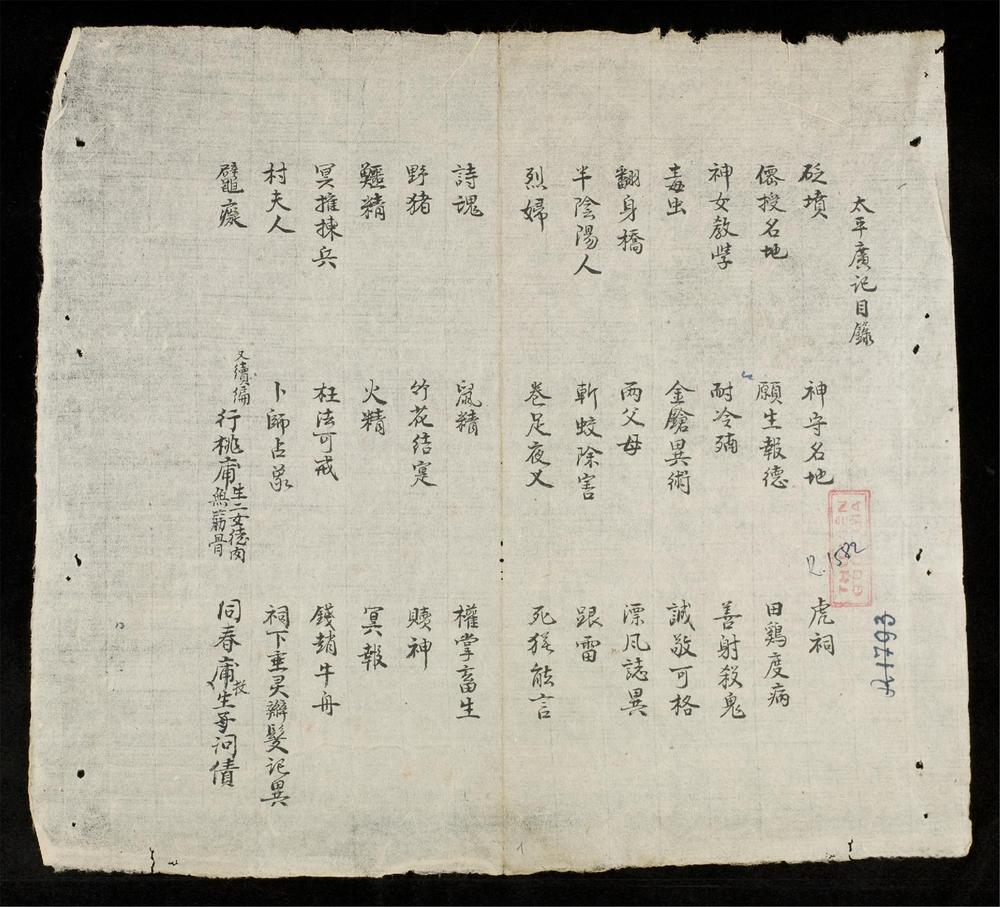 太平廣記目錄
砭墳 神守名地 虎祠
僊授名地 願生報德 田鷄度病
神女教學 耐冷 善射殺鬼
毒虫 金鎗異術 誠敬可格
翻身橋 两父母 漂風誌異
半陰陽人 斬蛟除害 跟雷
烈婦 巻足夜叉 死猴能言
詩魂 鼠精 權掌畜生
野猪 竹花结寔 贖神
鱷精 火精 冥報
冥推揀兵 枉法可戒 錢趙牛舟
村夫人 卜師占 祠下重灵辮髮記異
又續編 行桃庯 生二女徳肉無筋骨 同春庯
R.1582
A1793